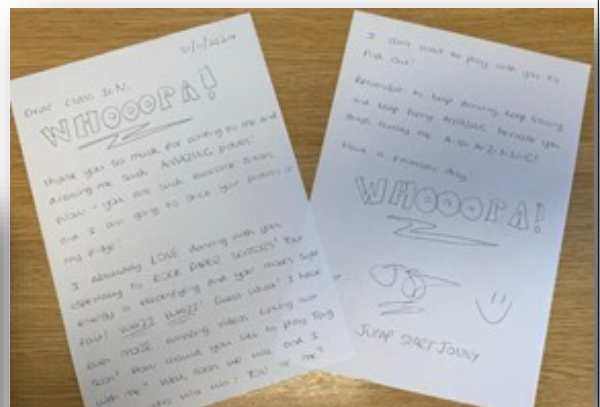 Dear Class
WHOOOPA!
Thank you so much for writing to me and
drawing me such AMAZING pictures!
Wow - you are such awesome
and I am going to your pictures
my fridge!
I absolutely LOVE dancing with you,
especially to ROCK PAPER SCISSORS! Your
energy is electrifying and your moves super
WHIZZ WHIZZ! Guess what! I have
even MORE dancing videos coming
soon! How would you like to play Tag
with me? Well, soon we will and I
who will win? You or me?
I can't wait to play with you to
find out!
Remember to keep dancing, keep
and keep being AMAZING because you
A-M-A-Z-I-N-G!
Have a day!
WHOOOPA!
JUMP START JONNY